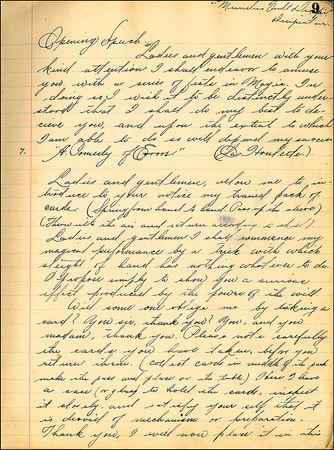 9
Opening Speech
Ladies and gentlemen with your
kind attention I shall endeavor to amuse
you with a series of feats in Magic. In
doing so, I wish it to be distinctly under
stood that I shall do my best to de
ceive you, and upon the extent to which
I am able to do so will depend my success
7. "A Comedy of Errors"
Ladies and gentlemen, allow me to in
troduce to your notice my trained pack of
cards. (Spring from hand to hand
the air and return according to
Ladies and gentlemen I shall commence my
magical performance by a trick with which
sleight of hand has nothing whatever to do.
I propose simply to show you a curious
effect produced by the power of the will.
Will some one oblige me by taking a
card? You sir, thank you? You, and you
madam, thank you. Please note carefully
the cards you have taken, before you
return them. (Collect cards in middle of the pack
make the pass and place on the table) Here I have
a case to hold the cards, inspect
it closely, and satisfy your self that it
is devoid of mechanism or preparation.
Thank you, I will now place it in this